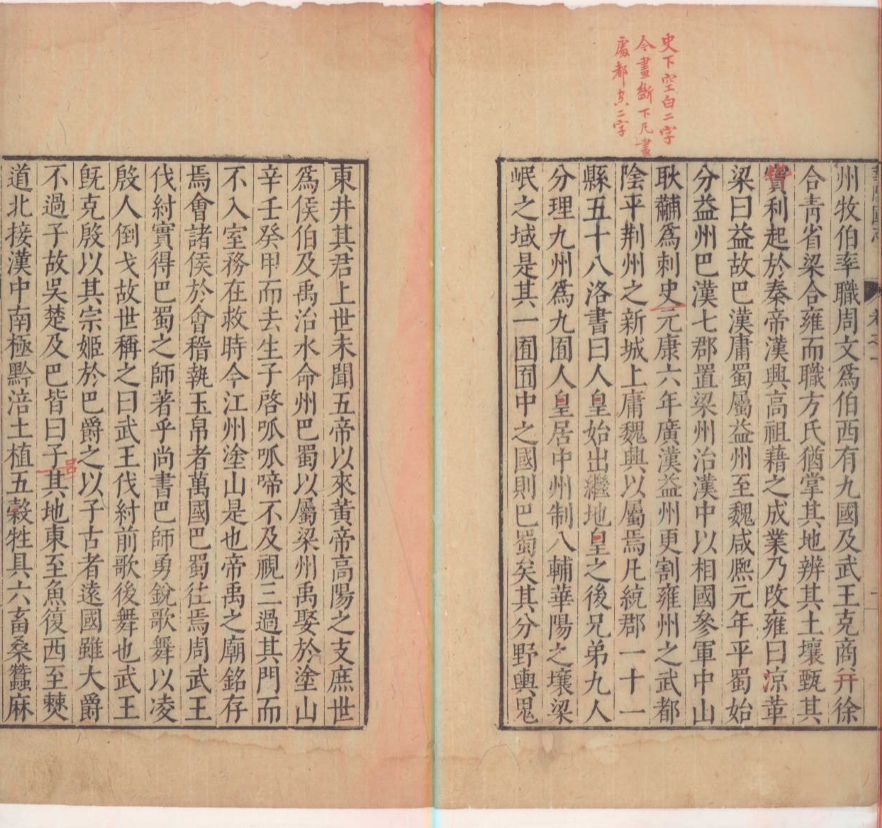 史下空白二字
今畫斷下凡畫
處都空二字
華陽國志
卷之一
州牧伯率職周文爲伯西有九國及武王克商幷徐
合靑省梁合雍而職方氏猶掌其地辨其土壤甄其
寶利起於秦帝漢興高祖藉之成業乃改雍曰涼革
梁曰益故巴漢庸蜀屬益州至魏咸熙元年平蜀始
分益州巴漢七郡置梁州治漢中以相國參軍中山
耿黼爲刺史元康六年廣漢益州更割雍州之武都
陰平荆州之新城上庸魏興以屬焉凡統郡一十一
縣五十八洛書曰人皇始出繼地皇之後兄弟九人
分理九州爲九囿人皇居中州制八輔華陽之壤梁
岷之域是其一囿囿中之國則巴蜀矣其分野輿鬼
東井其君上世未聞五帝以來黃帝高陽之支庶世
爲侯伯及禹治水命州巴蜀以屬梁州禹娶於塗山
辛壬癸甲而去生子啓呱呱啼不及視三過其門而
不入室務在救時今江州塗山是也帝禹之廟銘存
焉會諸侯於會稽執玉帛者萬國巴蜀往焉周武王
伐紂實得巴蜀之師著乎尚書巴師勇銳歌舞以凌
殷人倒戈故世稱之曰武王伐紂前歌後舞也武王
旣克殷以其宗姬於巴爵之以子古者遠國雖大爵
不過子故吳楚及巴皆曰子其地東至魚復西至僰
道北接漢中南極黔涪土植五穀牲具六畜桑蠶麻